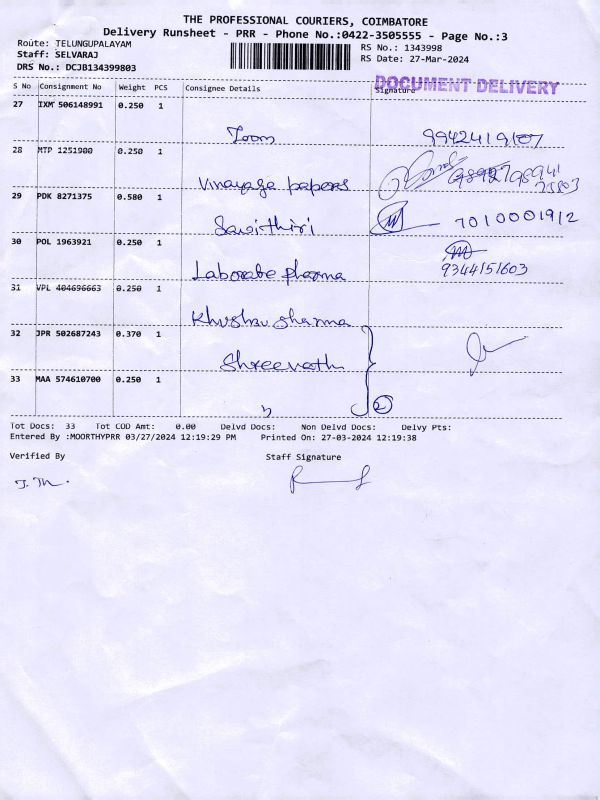 THE PROFESSIONAL COURIERS, COIMBATORE
Delivery Runsheet - PRR - Phone No.:0422-3505555 - Page No.:3
Route: TELUNGUPALAYAM
Staff: SELVARAJ
DRS No.: DCJB134399803
RS No.: 1343998
RS Date: 27-Mar-2024
DOCUMENT DELIVERY
S No Consignment No Weight PCS Consignee Details Signature
27 IXM 506148991 0.250 1
28 MTP 1251900 0.250 1
Vinayaga papers
29 PDK 8271375 0.580 1
Savithiri 7010001912
30 POL 1963921 0.250 1
Laborate pharma 9344151603
31 VPL 404696663 0.250 1
Khushbu sharma
32 JPR 502687243 0.370 1
Shreevath
33 MAA 574610700 0.250 1
"
2
Tot Docs: 33 Tot COD Amt: 0.00 Delvd Docs: Non Delvd Docs: Delvy Pts:
Entered By :MOORTHYPRR 03/27/2024 12:19:29 PM Printed On: 27-03-2024 12:19:38
Verified By Staff Signature